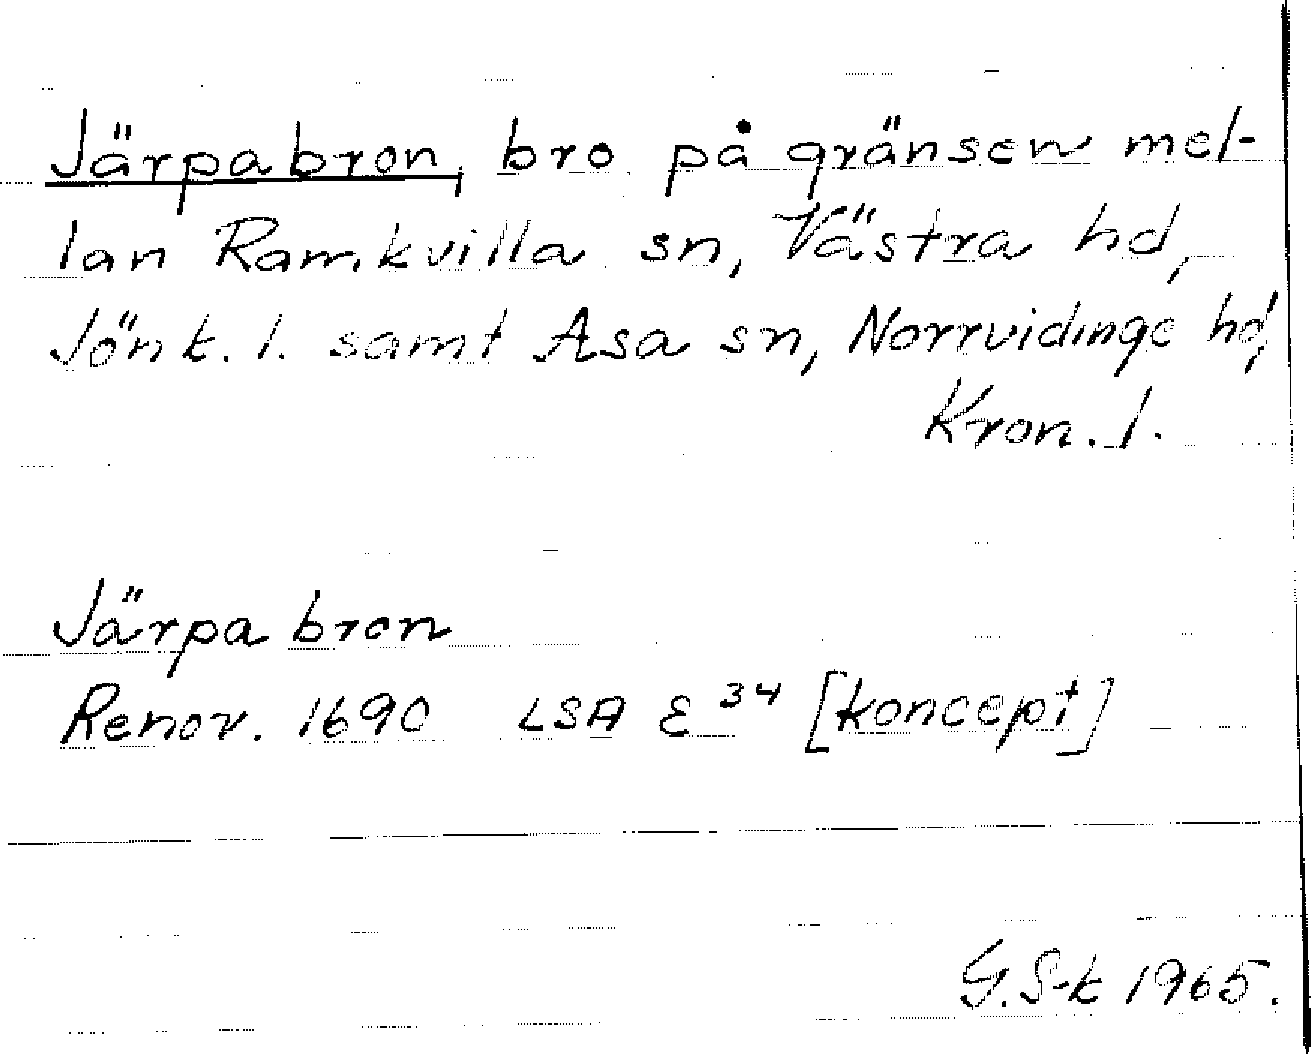 Järpabron, bro på gränsen mel-
lan Ramkvilla sn, Västra hd,
Jönk. l. samt Asa sn, Norrvidinge hd,
Kron. l.
Järpabron
Renov. 1690 LSA E 34 [koncept]
G. S-k 1965.